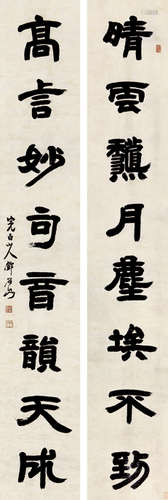 晴雲龝月塵埃不到
高言妙句音韻天成
完白山人鄧石如